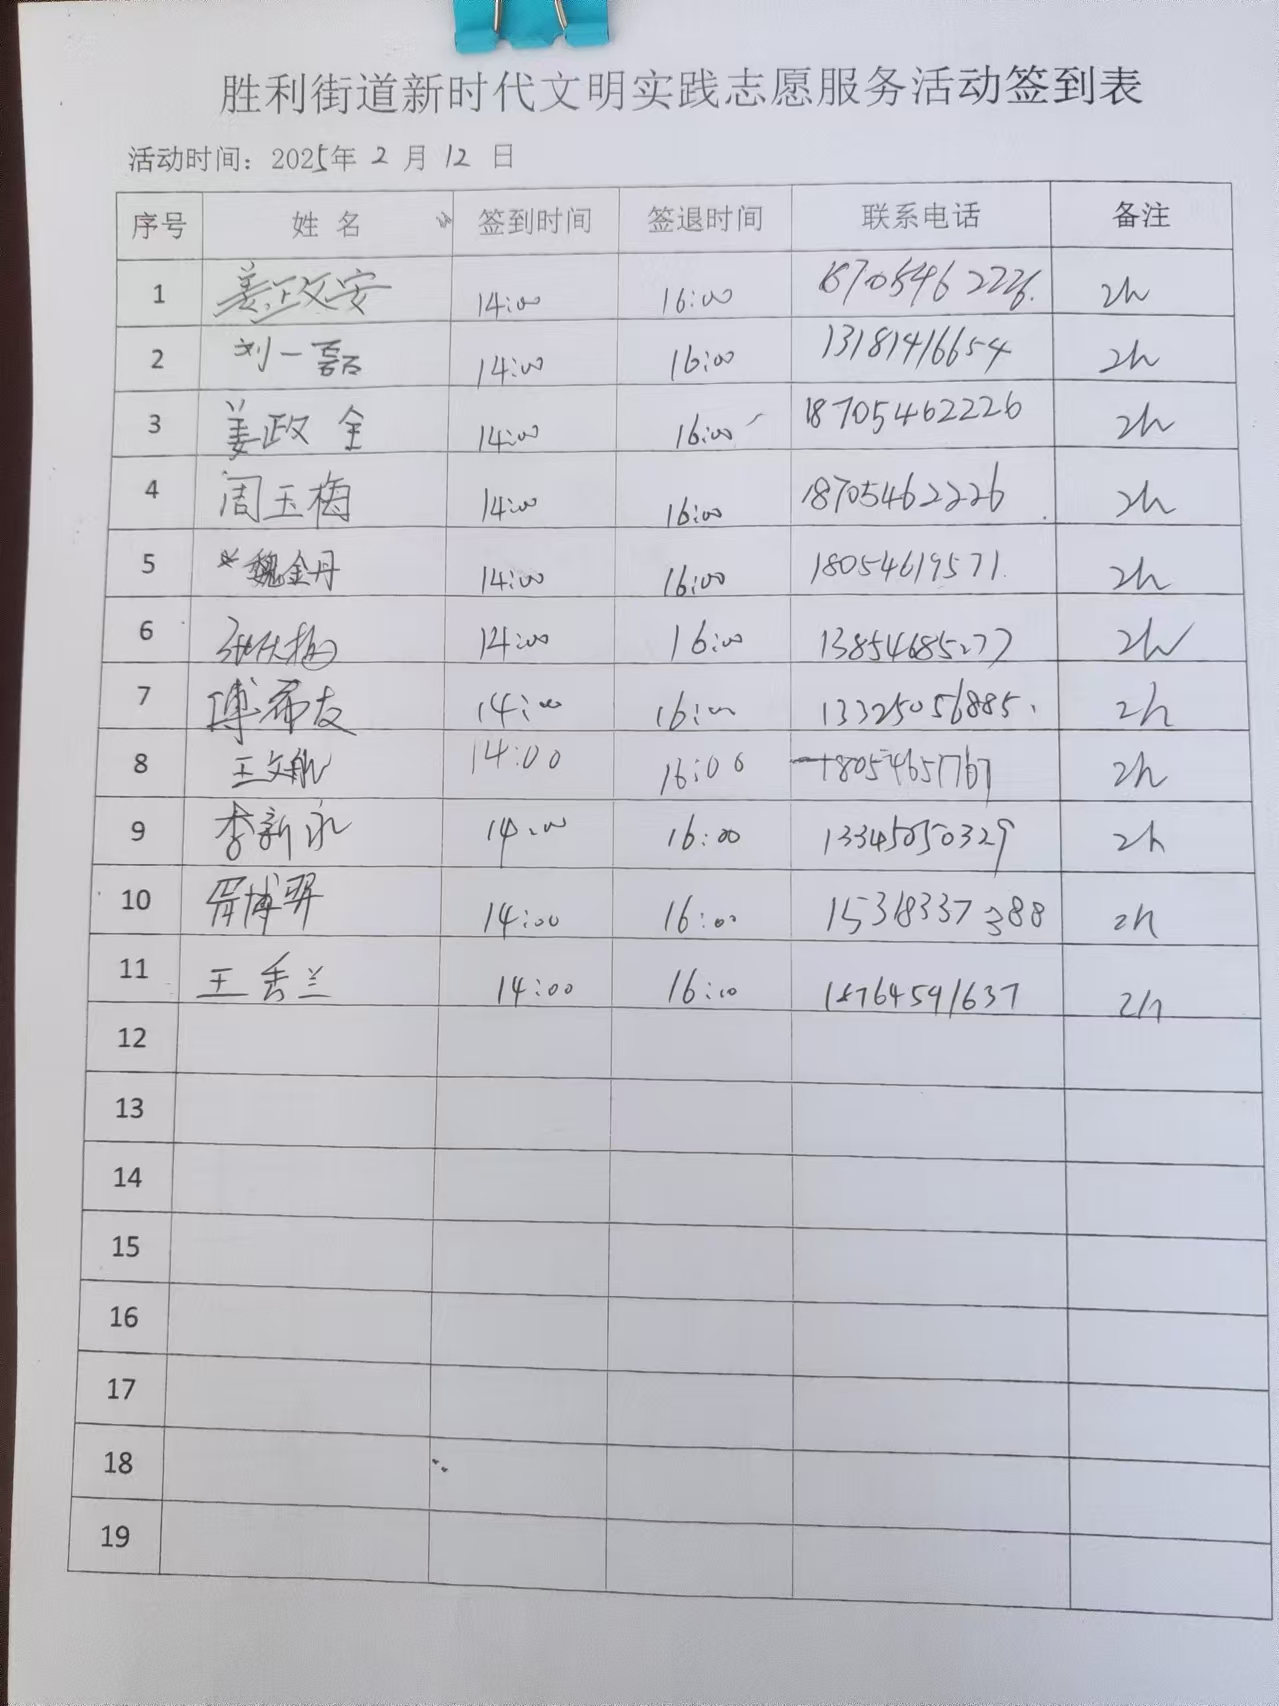 胜利街道新时代文明实践志愿服务活动签到表
活动时间：2025年 2 月 12 日
序号 姓 名 签到时间 签退时间 联系电话 备注
1 姜政安 14:00 16:00 18705462226. 2h
2 刘一磊 14:00 16:00 13181416654 2h
3 姜政全 14:00 16:00 18705462226 2h
4 周玉梅 14:00 16:00 18705462226 2h
5 魏金丹 14:00 16:00 18054619571 2h
6 14:00 16:00 13854685277 2h
7 傅希友 14:00 16:00 13325056885. 2h
8 王文航 14:00 16:00 18054651767 2h
9 李新永 14:00 16:00 13345050329 2h
10 胥博羿 14:00 16:00 15318337388 2h
11 王秀兰 14:00 16:00 2h
12
13
14
15
16
17
18
19